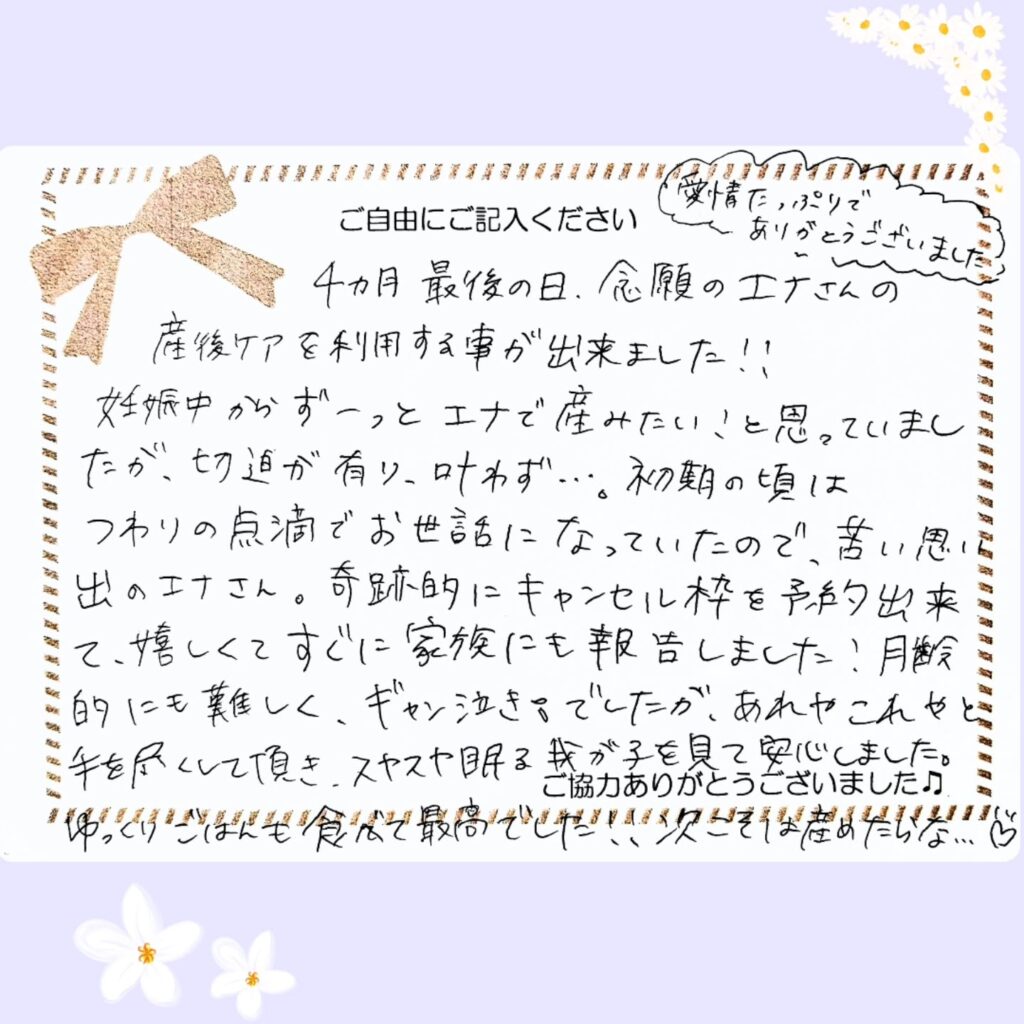 ご自由にご記入ください
愛情たっぷりで
ありがとうございました
4ヵ月最後の日、念願のエナさんの
産後ケアを利用する事が出来ました!!
妊娠中からずーっとエナで産みたい!と思っていまし
たが、切迫が有り、叶わず…。初期の頃は
つわりの点滴でお世話になっていたので、苦い思い
出のエナさん。奇跡的にキャンセル枠を予約出来
て、嬉しくてすぐに家族にも報告しました!月齢
的にも難しく、ギャン泣きでしたが、あれやこれやと
手を尽くして頂き、スヤスヤ眠る我が子を見て安心しました。
ご協力ありがとうございました♫
ゆっくりごはんも食べて最高でした!!次こそは産めたらな…♡